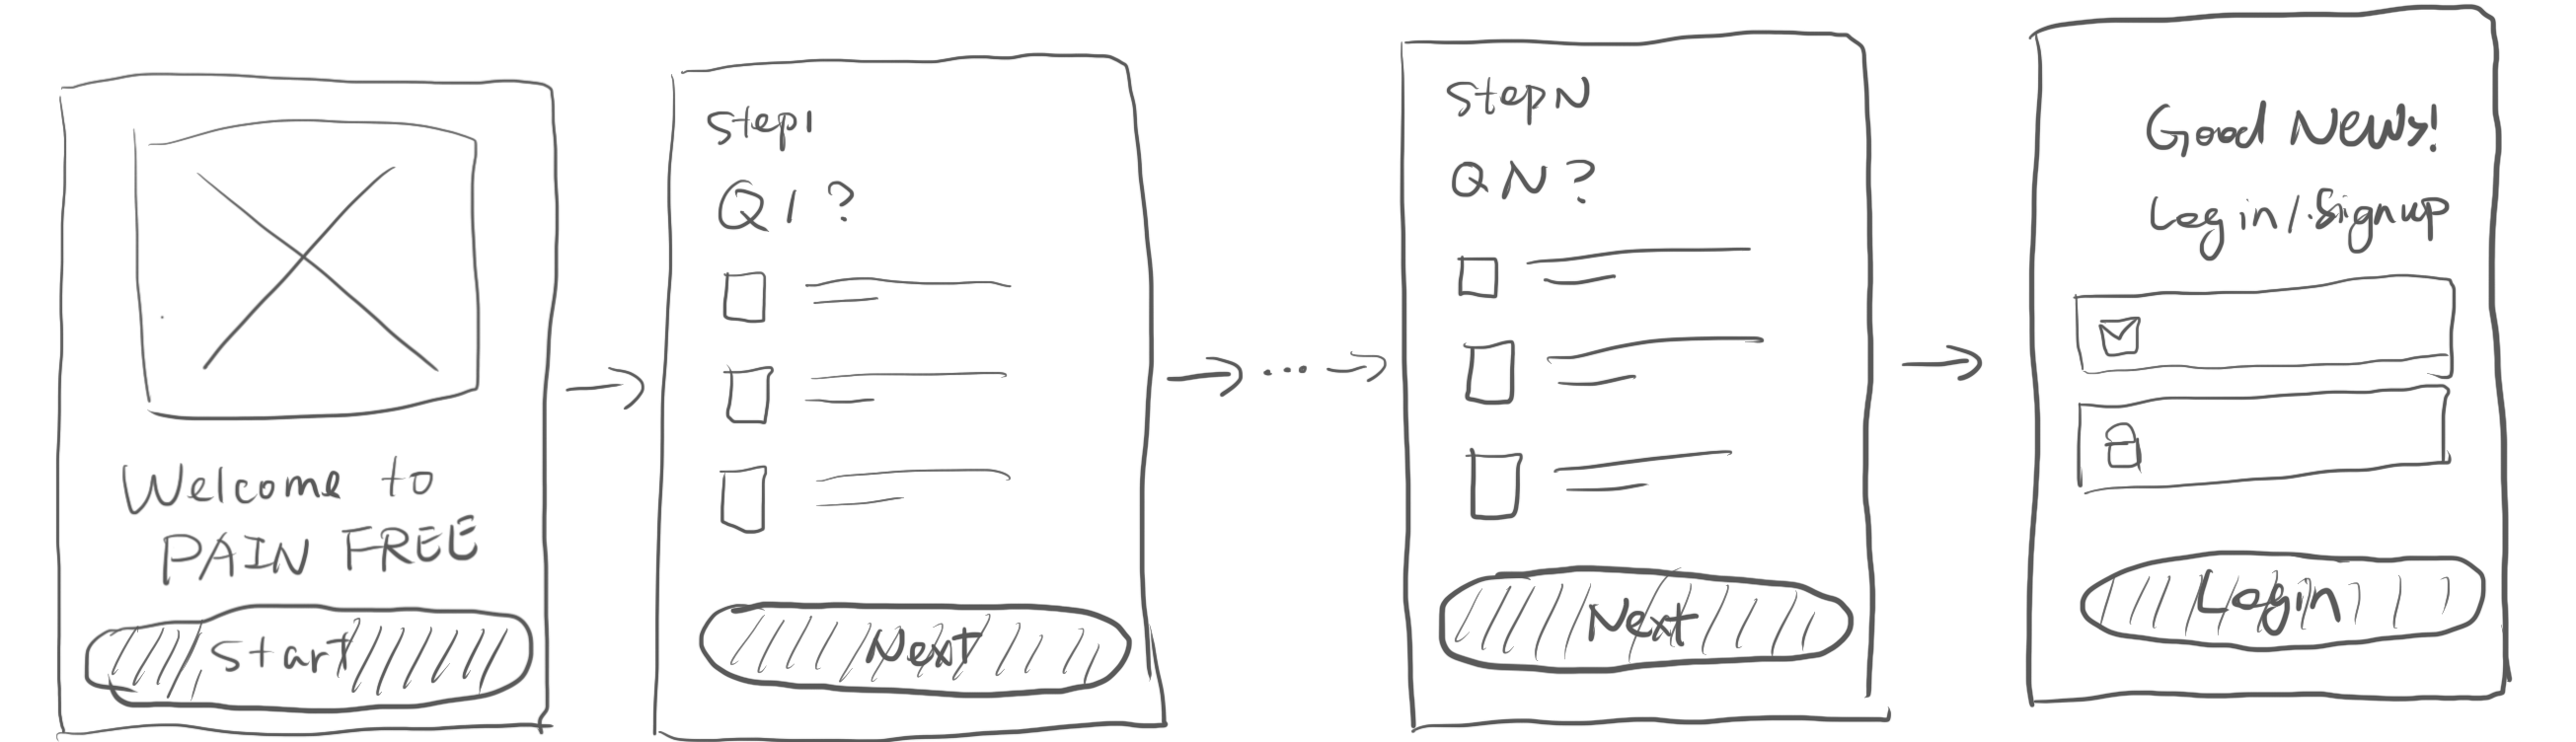 Welcome to
PAIN FREE
Start
Step1
Q1?
Next
StepN
QN?
Next
Good News!
Log in/Signup
Login